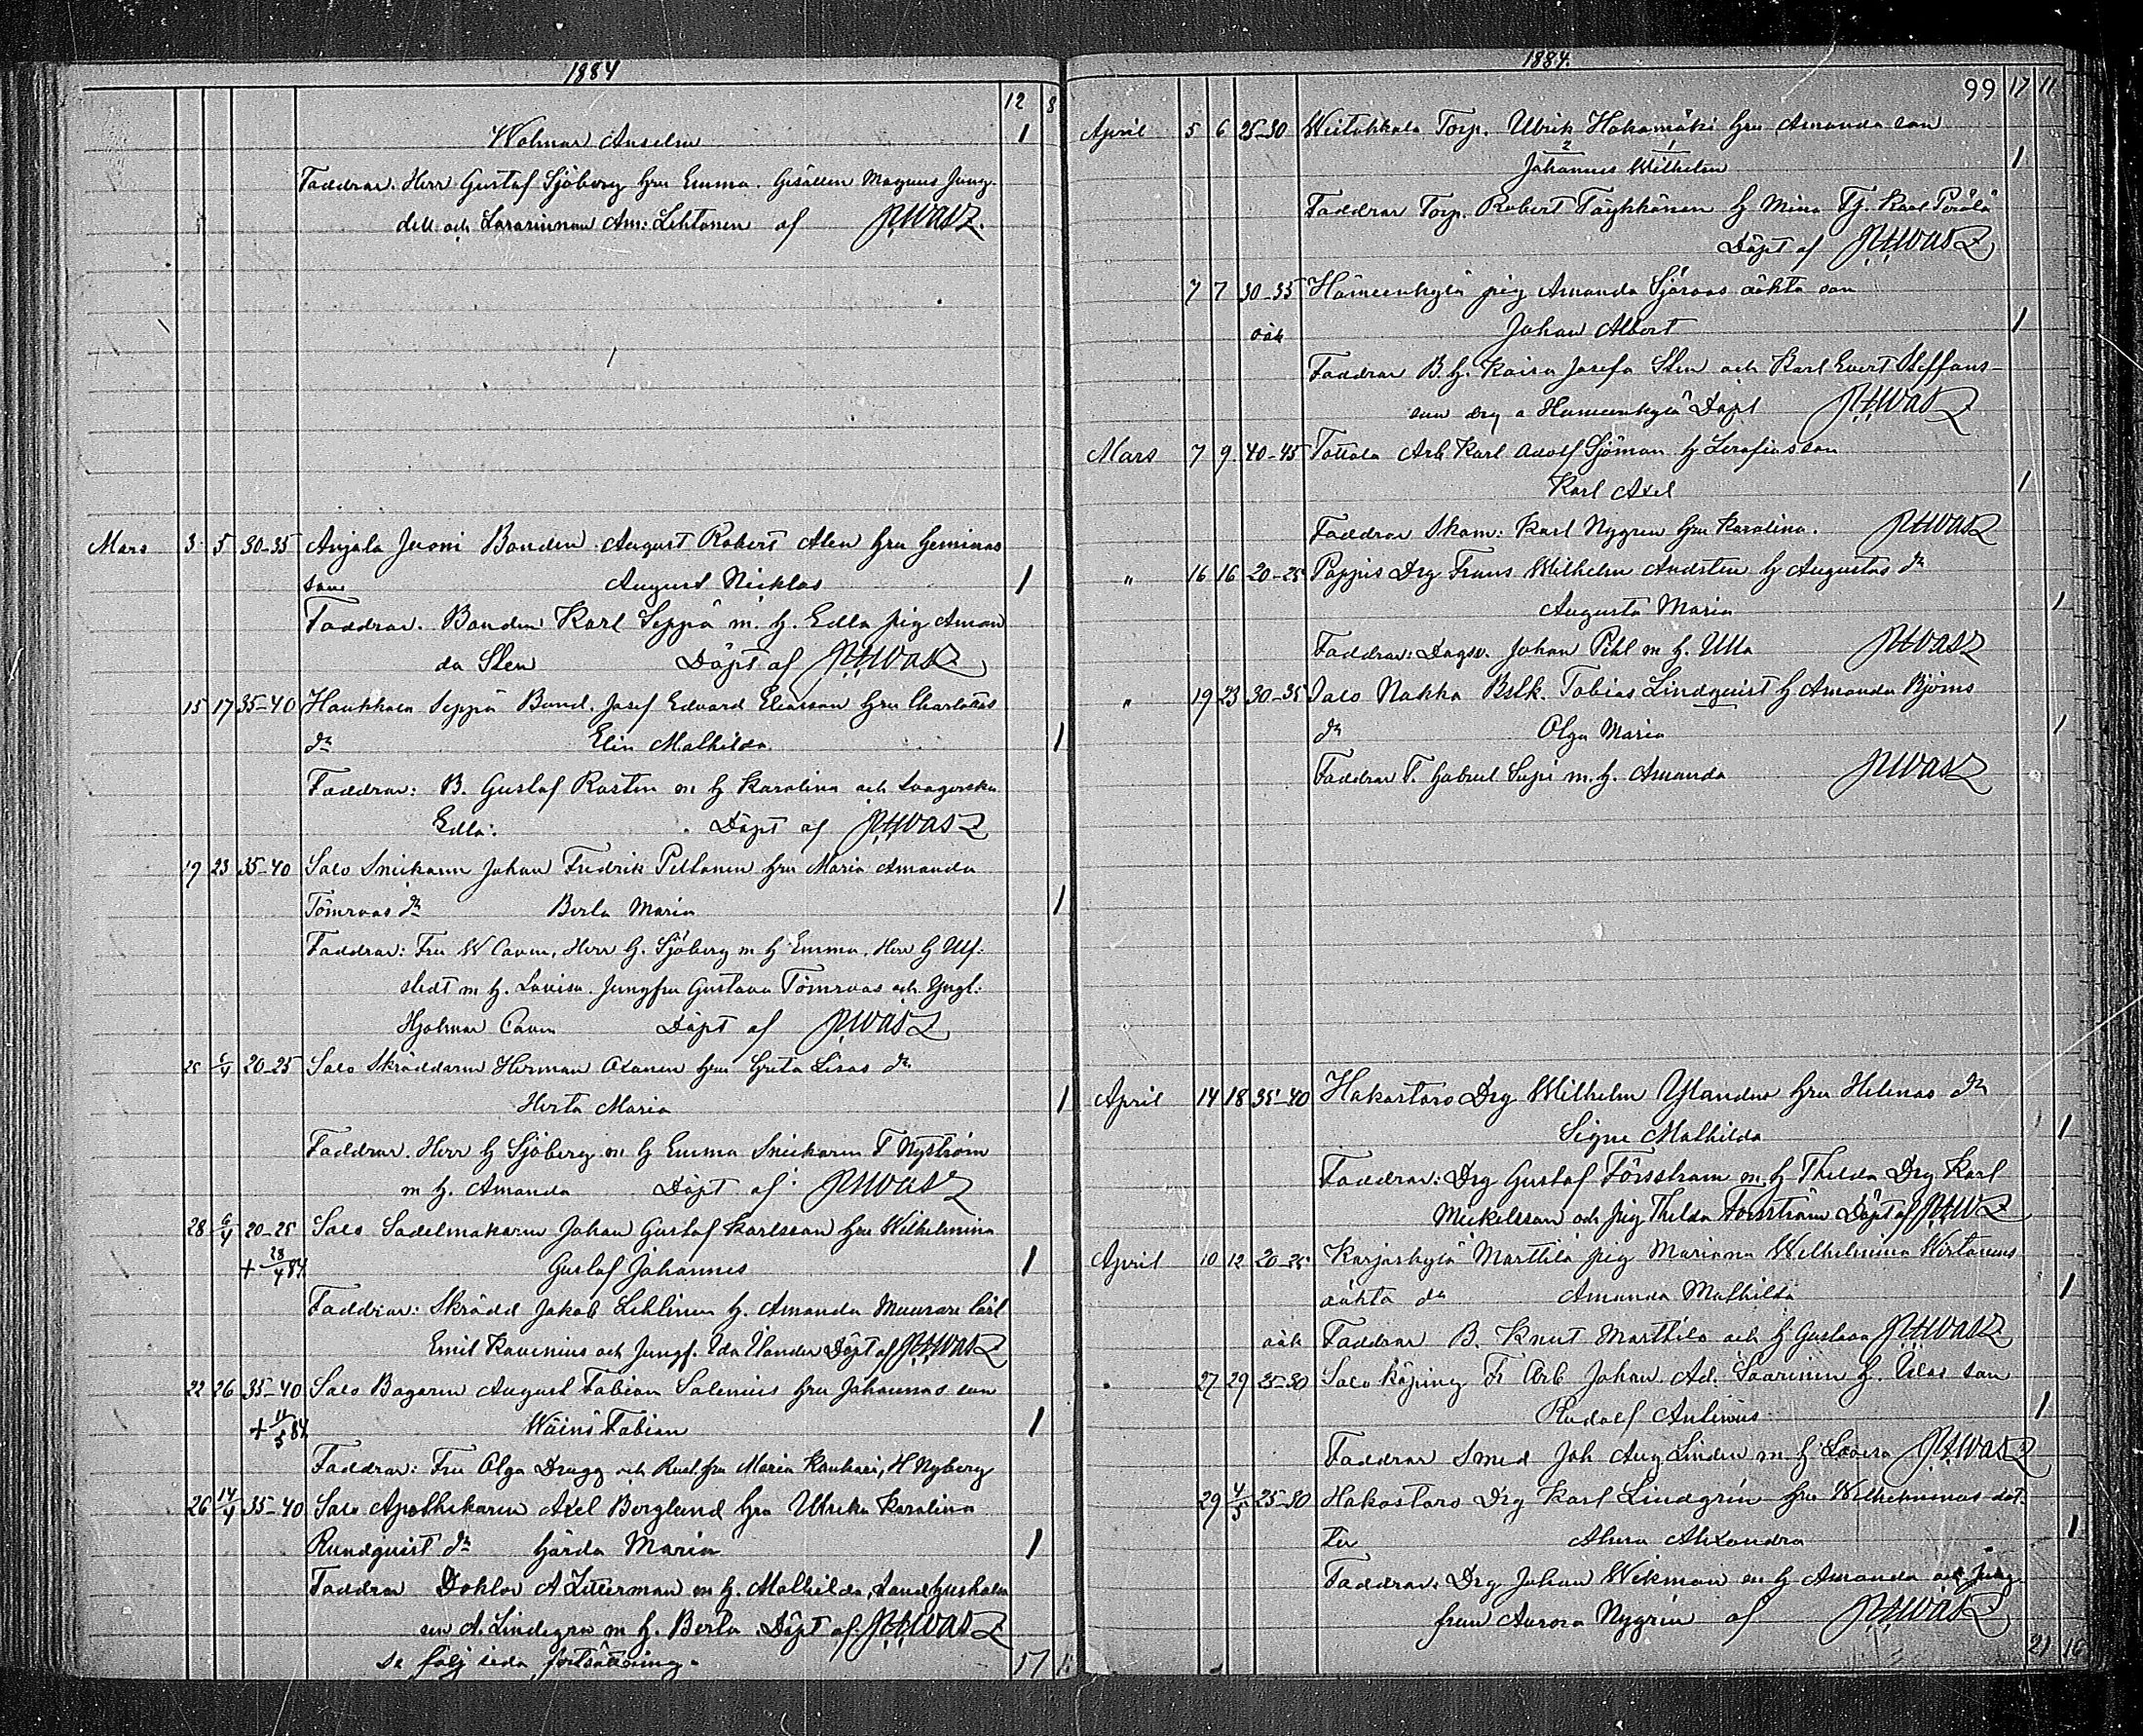 1884
12 8
Wolmar Anselm 1
Faddrar. Herr Gustaf Sjöberg hru Emma. Gesällen Magnus Jung-
dell och Lärarinnan Am: Lehtonen af
Mars 3 5 30-35 Anjala Juoni Bonden August Robert Alen hru Geminas
son August Nicklas 1
Faddrar. Bonden Karl Seppä m. h. Edla pig Aman
da Sten Döpt af
15 17 35-40 Haukkala Seppä Bond. Josef Edvard Eliasson hru Charlottas
dr Elin Mathilda 1
Faddrar: B. Gustaf Rosten m h Karolina och
Edla. Döpt af
19 23 35-40 Salo Snickaren Johan Fredrik Peltonen hru Maria Amanda
Törnroos dr Berta Maria 1
Faddrar: Fru W Caven, Herr G. Sjöberg m h Emma, Herr G Ulf-
stedt m h. Lovisa. Jungfru Gustava Törnroos och Yngl:
Hjalmar Caven Döpt af
25 6/4 20-25 Salo Skräddaren Herman Oxanen hru Greta Lisas dr
Herta Maria 1
Faddrar. Herr G Sjöberg m h Emma Snickaren F Nyström
m h. Amanda Döpt af
28 6/4 20-25 Salo Sadelmakaren Johan Gustaf Karlsson hru Wilhelmina
+ 28/4 84 Gustaf Johannes 1
Faddrar: Skrädd Jakob Lehtinen h. Amanda Muurare Carl
Emil Ravenius och Jungf. Ida Ulander Döpt af
22 26 35-40 Salo Bagaren August Fabian Salenius hru Johannas son
+ 11/5 84 Wäinö Fabian 1
Faddrar: Fru Olga Drugg och Maria Kankari, H Nyberg
26 14/4 35-40 Salo Apothekaren Axel Berglund hru Ulrika Karolina
Rundquist dr Gärda Maria 1
Faddrar Doktor A Zitterman m h. Mathilda,
en A. Lindegren m h. Berta Döpt af
Se följ sida fortsättning. 17
1884.
99 17 11
April 5 6 25-30 Torp. Ulrik Hakamäki hru Amanda son
2 1
Johannes Wilhelm 1
Faddrar Torp. Robert Täykkönen h Mina Tj. Karl Perälä
Döpt af
7 7 30-35 Hämeenkylä pig Amanda Sjöroos oäkta son
oäk Johan Albert 1
Faddrar B. h. Kaisa Josefa Sten och Karl Evert Steffans-
son drg a Hämeenkylä Döpt
Mars 7 9 40-45 Tottola Arb Karl Adolf Sjöman h Serafinas son
Karl Axel 1
Faddrar Skom: Karl Nygren hru Karolina.
" 16 16 20-25 Pappis Drg Frans Wilhelm Andsten h Augustas dr
Augusta Maria 1
Faddrar: Dagsv. Johan Pihl m h. Ulla
" 19 23 30-35 Salo Nakka Bslk. Tobias Lindquist h Amanda Björns
dr Olga Maria 1
Faddrar T. Gabriel Sepi m. h. Amanda
April 14 18 35-40 Hakastaro Drg Wilhelm Ylander hru Helenas dr
Signe Mathilda 1
Faddrar: Drg Gustaf Forsstram m h Thilda Drg Karl
Mickelsson och pig Thilda Forsström Döpt af
April 10 12 20-25 Karjaskylä Marttila pig Mariana Wilhelmina Wirtanens
oäkta dr Amanda Mathilda 1
oäk Faddrar B. Knut Marttila och h Gustava
27 29 25-30 Salo köping Fr Arb Johan Ad. Saarinen h. Ulas son
Rudolf Anlimus 1
Faddrar Smed Joh Aug Linden m h Lovisa
29 4/5 25-30 Hakastaro Drg Karl Lindgrén hru Wilhelminas dot-
ter Alma Alexandra 1
Faddrar: Drg Johan Wikman m h Amanda och jung-
frun Aurora Nygrén af
21 16